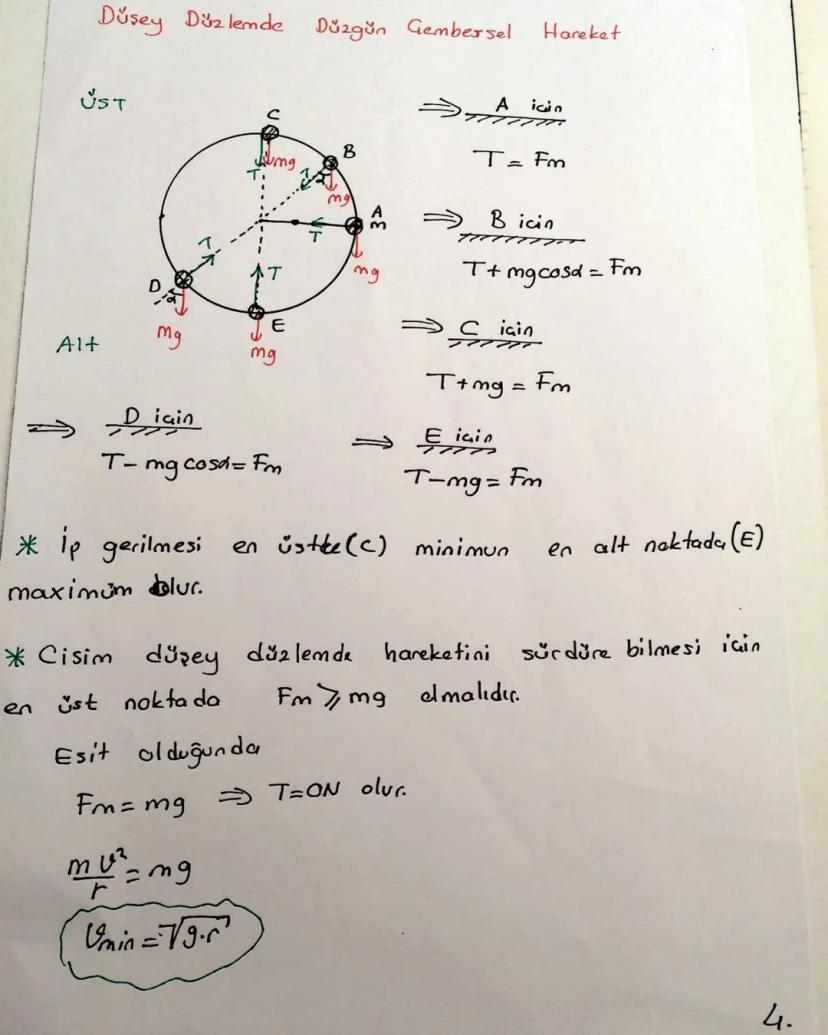 Düşey Düzlemde Düzgün Çembersel Hareket
ÜST
C
B
T
mg
T
α
mg
A
m
T
mg
T
D
α
mg
T
E
mg
Alt
⇒ A için
T = Fm
⇒ B için
T + mg cosα = Fm
⇒ C için
T + mg = Fm
⇒ D için
T - mg cosα = Fm
⇒ E için
T - mg = Fm
* İp gerilmesi en üstte (C) minimun en alt noktada (E)
maximum olur.
* Cisim düşey düzlemde hareketini sürdüre bilmesi için
en üst noktada Fm ≥ mg olmalıdır.
Esit olduğunda
Fm = mg ⇒ T=0N olur.
mv²/r = mg
Vmin = √g.r
4.